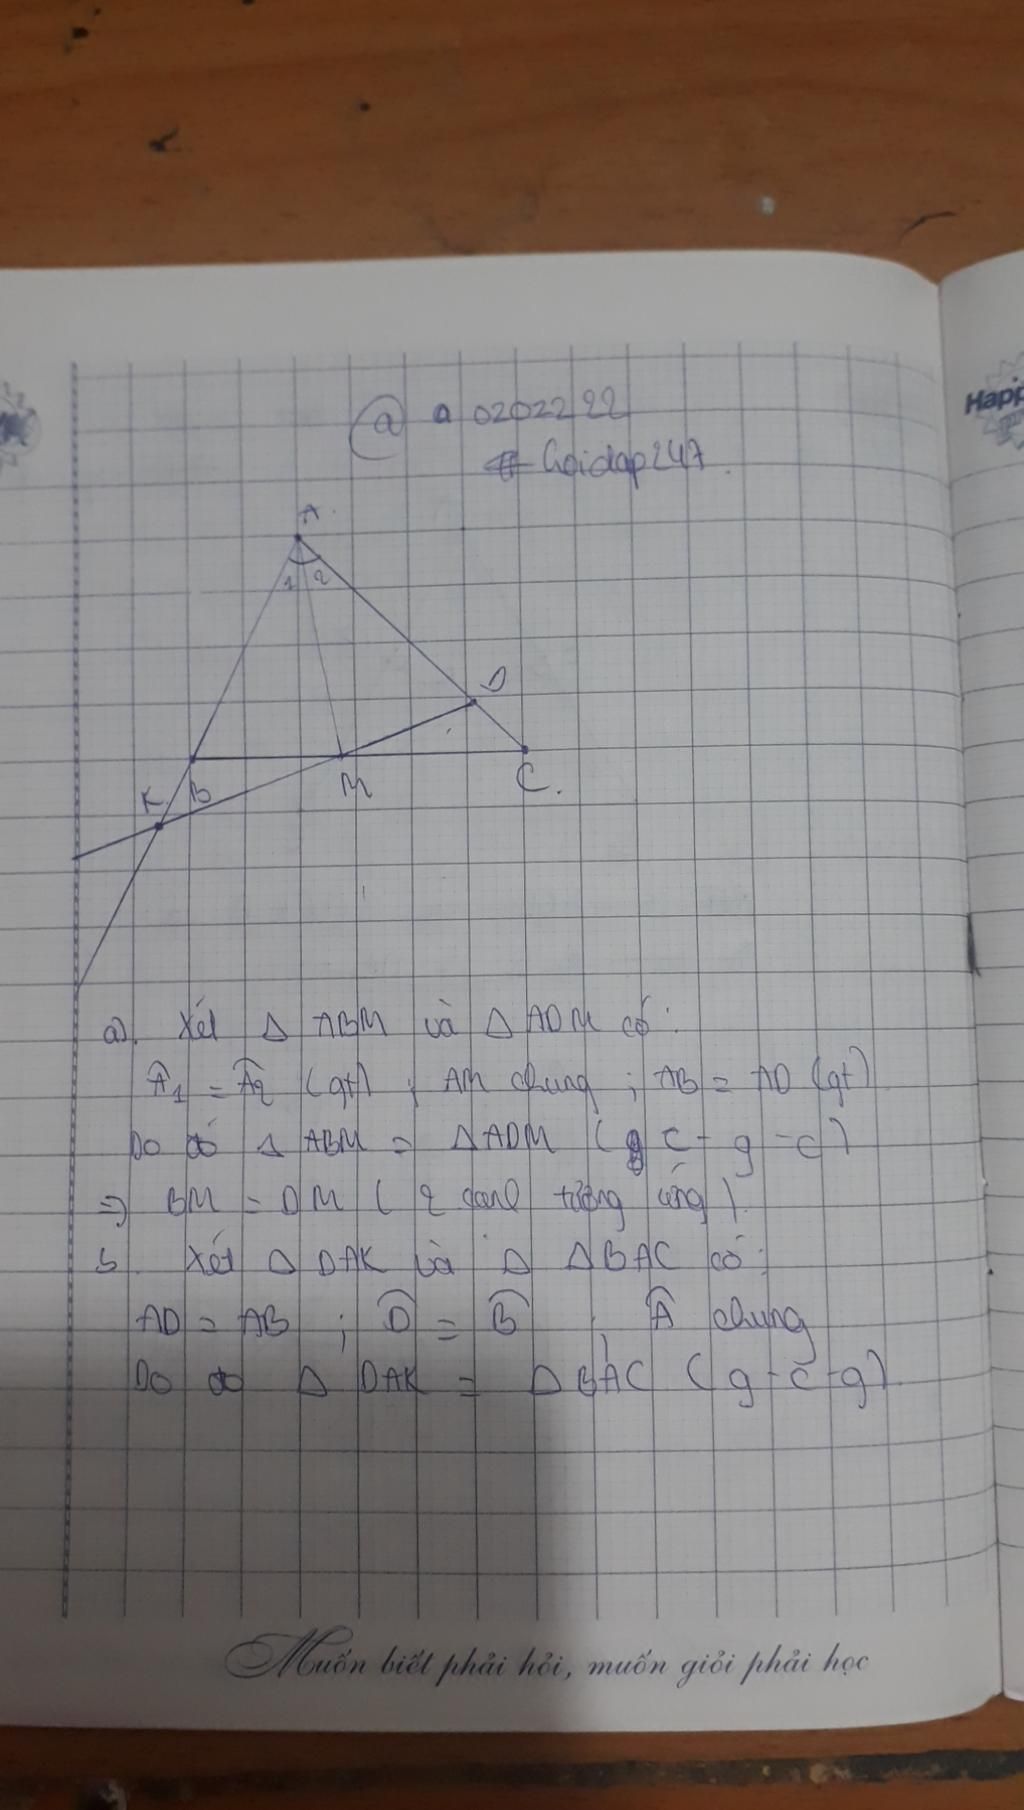 @ a 0202222
# hoidap247.
A
1 2
D
K B M C.
a). Xét Δ ABM và Δ ADM có:
Â1 = Â2 (gt) ; AM chung ; AB = AD (gt)
Do đó Δ ABM = Δ ADM ( c - g - c )
=> BM = DM ( 2 cạnh tương ứng ).
b. Xét Δ DAK và Δ Δ BAC có:
AD = AB ; D̂ = B̂ ; Â chung
Do đó Δ DAK = Δ BAC ( g - c - g )
Muốn biết phải hỏi, muốn giỏi phải học
Happ